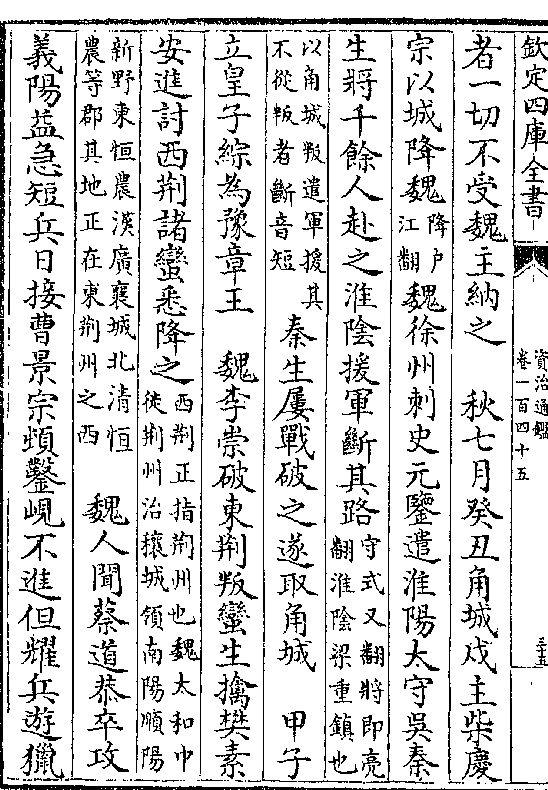 欽定四庫全書
資治通鑑
卷一百四十五
三十五
者一切不受魏主納之　秋七月癸丑角城戍主柴慶
宗以城降魏降戶江翻魏徐州刺史元鑒遣淮陽太守吳秦
生將千餘人赴之淮陰援軍斷其路守式又翻將即亮翻淮陰梁重鎮也
以角城叛遣軍援其不從叛者斷音短秦生屢戰破之遂取角城　甲子
立皇子綜為豫章王　魏李崇破東荆叛蠻生擒樊素
安進討西荆諸蠻悉降之西荆正指荆州也魏太和中徙荆州治穰城領南陽順陽
新野東恒農漢廣襄城北清恒農等郡其地正在東荆州之西　魏人聞蔡道恭卒攻
義陽益急短兵日接曹景宗頓鑿峴不進但耀兵遊獵